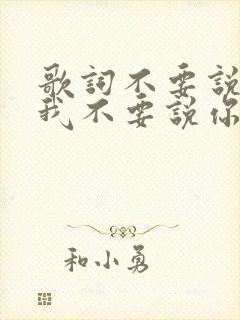 歌詞不要說
我不要說你
和小勇